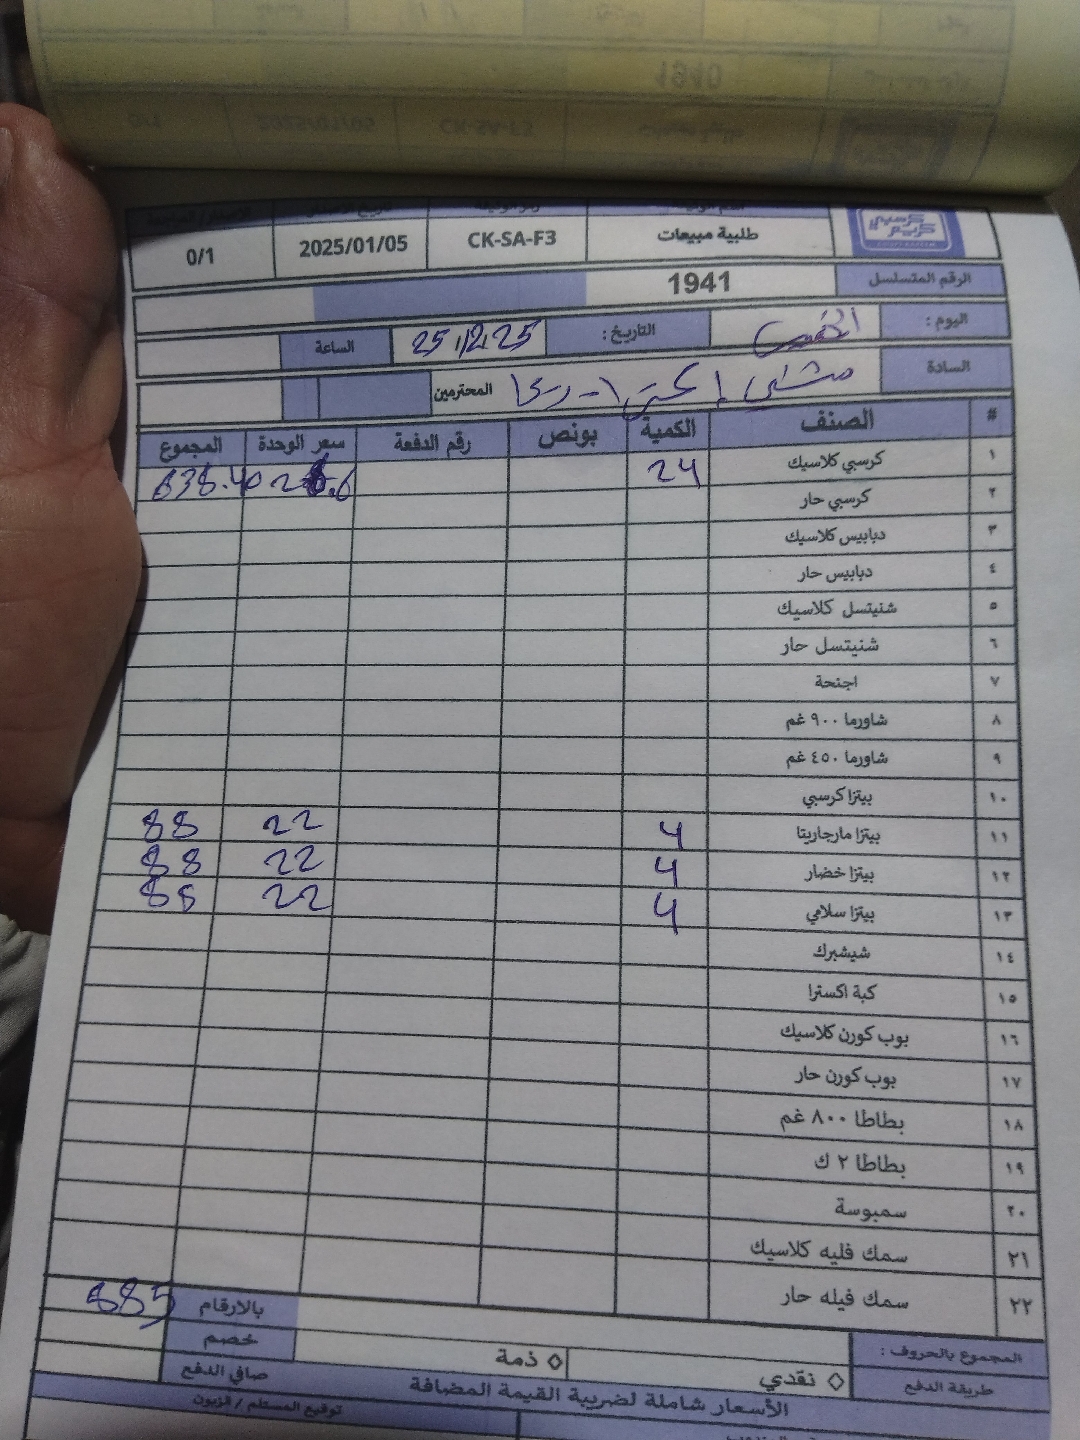 طلبية مبيعات CK-SA-F3 2025/01/05 0/1
الرقم المتسلسل 1941
اليوم : الخميس التاريخ : 25/12/25 الساعة
السادة المحترمين
# الصنف الكمية بونص رقم الدفعة سعر الوحدة المجموع
١ كرسبي كلاسيك 24 26.6 638.40
٢ كرسبي حار
٣ دبابيس كلاسيك
٤ دبابيس حار
٥ شنيتسل كلاسيك
٦ شنيتسل حار
٧ اجنحة
٨ شاورما ٩٠٠ غم
٩ شاورما ٤٥٠ غم
١٠ بيتزا كرسبي
١١ بيتزا مارجاريتا 4 22 88
١٢ بيتزا خضار 4 22 88
١٣ بيتزا سلامي 4 22 88
١٤ شيشبرك
١٥ كبة اكسترا
١٦ بوب كورن كلاسيك
١٧ بوب كورن حار
١٨ بطاطا ٨٠٠ غم
١٩ بطاطا ٢ ك
٢٠ سمبوسة
٢١ سمك فليه كلاسيك
٢٢ سمك فيله حار
المجموع بالحروف : بالارقام 885
خصم
طريقة الدفع ◇ نقدي ◇ ذمة صافي الدفع
الأسعار شاملة لضريبة القيمة المضافة
توقيع المستلم / الزبون